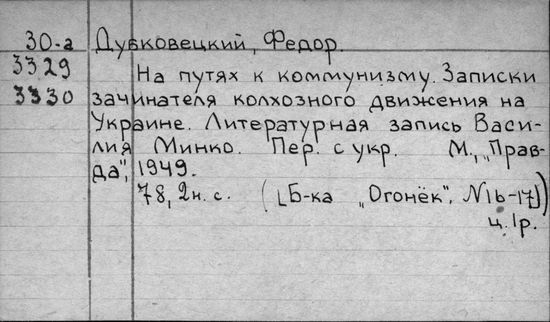 30-а Дубковецкий, Федор.
3329 На путях к коммунизму. Записки
3330 зачинателя колхозного движения на
Украине. Литературная запись Васи-
лия Минко. Пер. с укр. М., „Прав-
да", 1949.
78, 2 н. с. ([Б-ка „Огонёк". N 16-17])
ц. 1р.